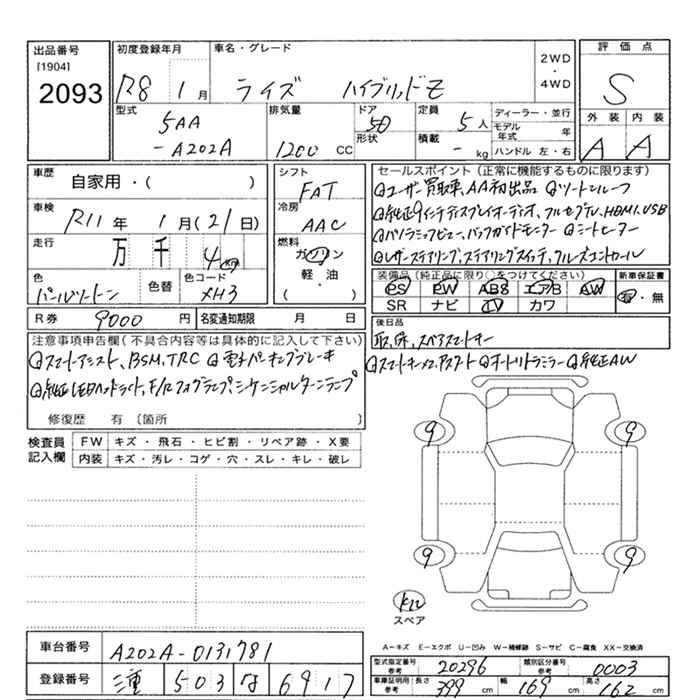 出品番号
[1904]
2093
初度登録年月
R8 1 月
車名・グレード
ライズ ハイブリッドZ
2WD
・
4WD
評価点
S
外装 内装
A A
型式
5AA
-A202A
排気量
1200 CC
ドア
5D
形状
定員
5 人
積載
- kg
ディーラー・並行
モデル年式 年
ハンドル 左・右
車歴
自家用・( )
車検
R11 年 1 月 (21 日)
走行
万 千 4 km
色
パールツートン
色替
色コード
XH3
シフト
FAT
冷房
AAC
燃料
ガソリン
軽・油
( )
セールスポイント (正常に機能するものに限ります)
◎ユーザー買取車、AA初出品 ◎ツートンルーフ
◎純正9インチディスプレイオーディオ、フルセグTV、HDMI、USB
◎パノラミックビュー、バックガイドモニター ◎シートヒーター
◎レザーステアリング、ステアリングスイッチ、クルーズコントロール
装備品(純正品に限り○をつけてください)
PS PW ABS エアB AW
SR ナビ TV カワ
新車保証書
有・無
R券 9000 円
名変通知期限 月 日
後日品
取、保、スペアスマートキー
注意事項申告欄(不具合内容等は具体的に記入して下さい)
◎スマートアシスト、BSM、TRC ◎電子パーキングブレーキ
◎純正LEDヘッドライト、F/Rフォグランプ、シーケンシャルターンランプ
◎スマートキー×2、Pスタート ◎オートリトラミラー ◎純正AW
修復歴 有 〔箇所 〕
検査員
記入欄
FW キズ・飛石・ヒビ割・リペア跡・X要
内装 キズ・汚レ・コゲ・穴・スレ・キレ・破レ
9 9
9 9
スペア
A－キズ E－エクボ U－凹み W－補修跡 S－サビ C－腐食 XX－交換済
車台番号 A202A-0131781
登録番号 三重 503 な 6917
型式指定番号
参考 20296
類別区分番号
参考 0003
車庫証明用
参考 長さ 399 cm 幅 169 cm 高さ 162 cm